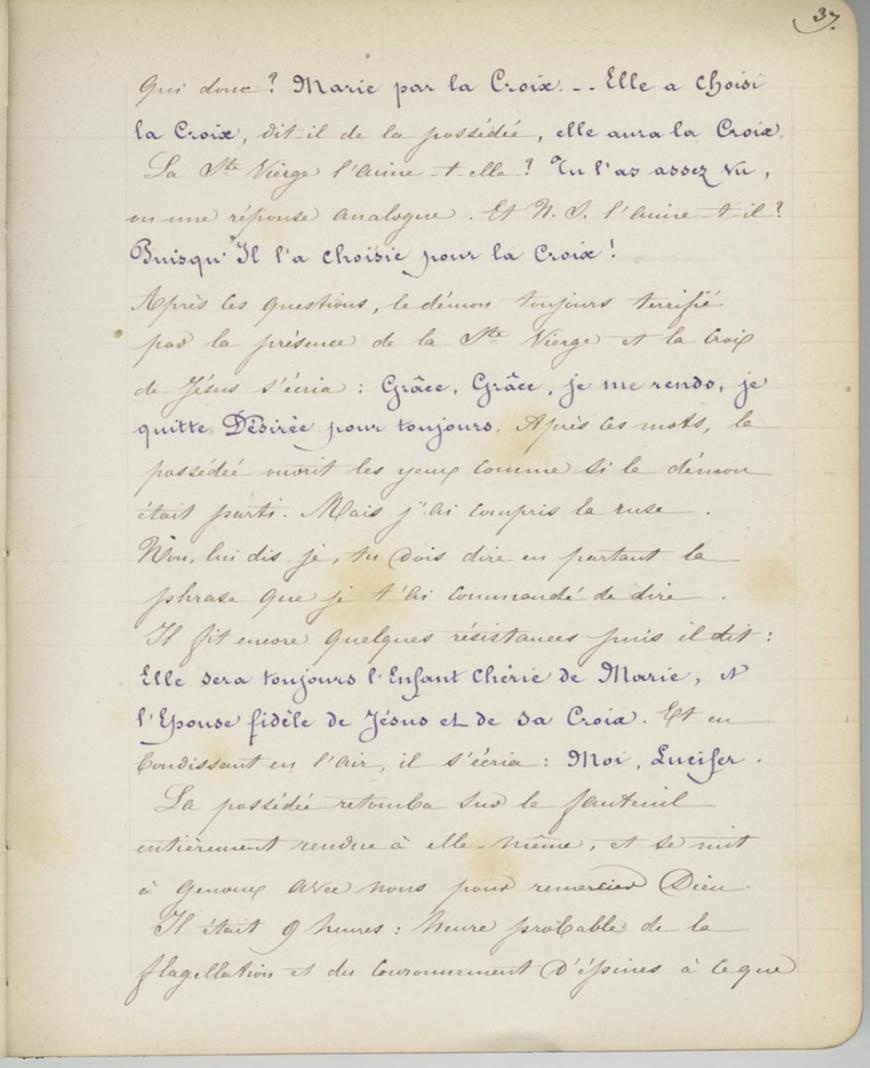 37.
Qui donc? Marie par la Croix. -- Elle a choisi
la Croix, dit-il de la possédée, elle aura la Croix.
La Ste Vierge l'aime-t-elle? Tu l'as assez vu,
ou une réponse analogue. Et N. S. l'aime-t-il?
Puisqu'Il l'a choisie pour la Croix!
Après ces questions, le démon toujours terrifié
par la présence de la Ste Vierge et la Croix
de Jésus s'écria : Grâce, Grâce, je me rends, je
quitte Désirée pour toujours. Après ces mots, la
possédée ouvrit les yeux comme si le démon
était parti. Mais j'ai compris la ruse.
Non, lui dis-je, tu dois dire en partant la
phrase que je t'ai commandé de dire.
Il fit encore quelques résistances puis il dit :
Elle sera toujours l'Enfant Chérie de Marie, et
l'Epouse fidèle de Jésus et de sa Croix. Et en
bondissant en l'air, il s'écria : Moi, Lucifer.
La possédée retomba sur le fauteuil
entièrement rendue à elle-même, et se mit
à genoux avec nous pour remercier Dieu.
Il était 9 heures : heure probable de la
flagellation et du couronnement d'épines à ce que